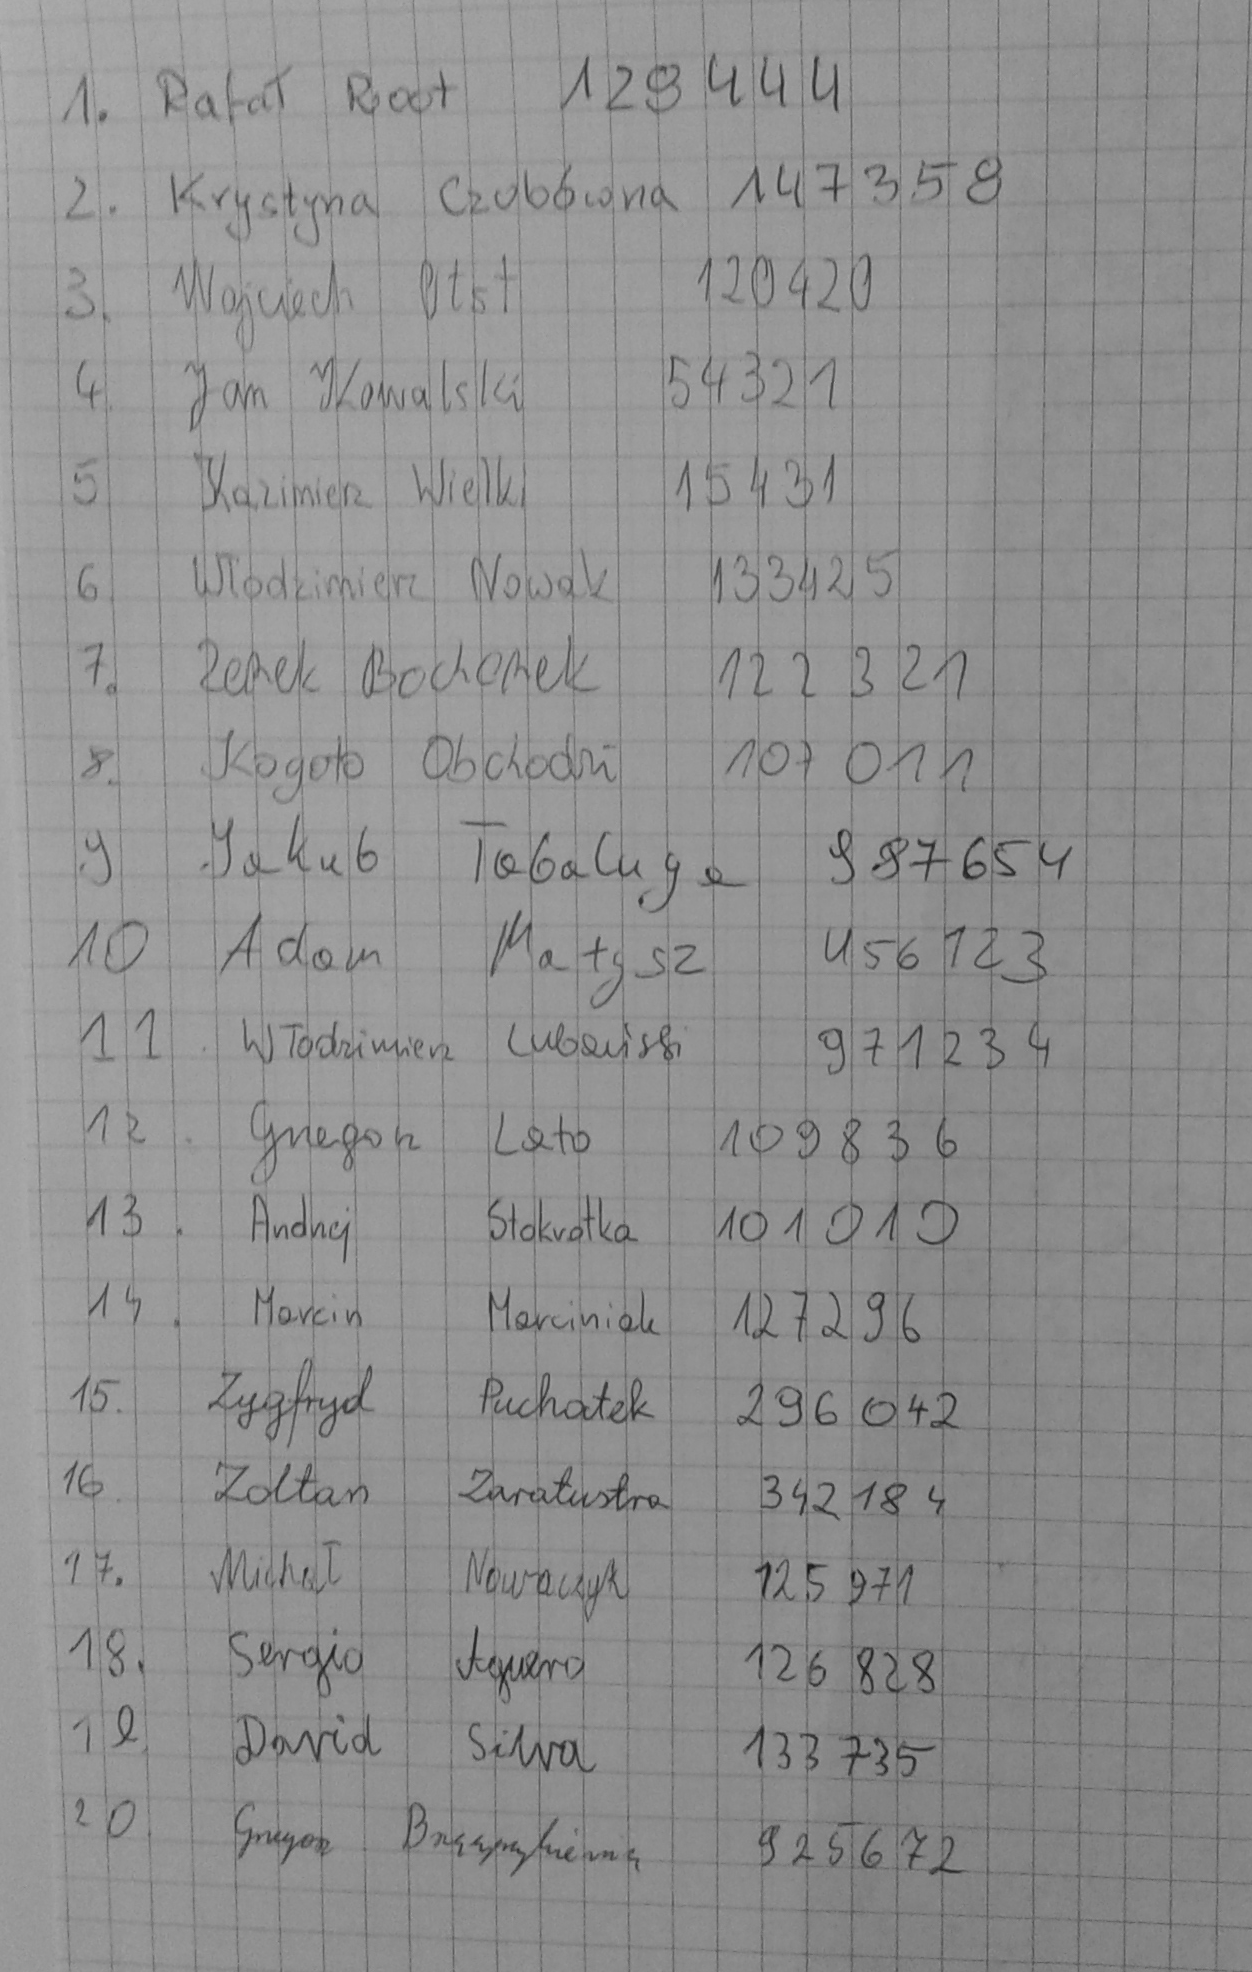 1. Rafał Root 129444
2. Krystyna Czubówna 147359
3. Wojciech Otst 120420
4. Jan Kowalski 54321
5 Kazimierz Wielki 15431
6 Włodzimierz Nowak 133425
7. Zenek Bochenek 122321
8. Kogoto Obchodzi 107011
9 Jakub Tabaluga 987654
10 Adam Małysz 456123
11. Włodzimierz 971234
12. Grzegorz Lato 109836
13. Andrzej Stokrotka 101010
14. Marcin Marciniak 127296
15. Zygfryd Puchatek 296042
16. Zoltan Zaratustra 342184
17. Michał Nowaczyk 125971
18. Sergio Aguero 126828
19. David Silva 133735
20 Grzegorz 925672